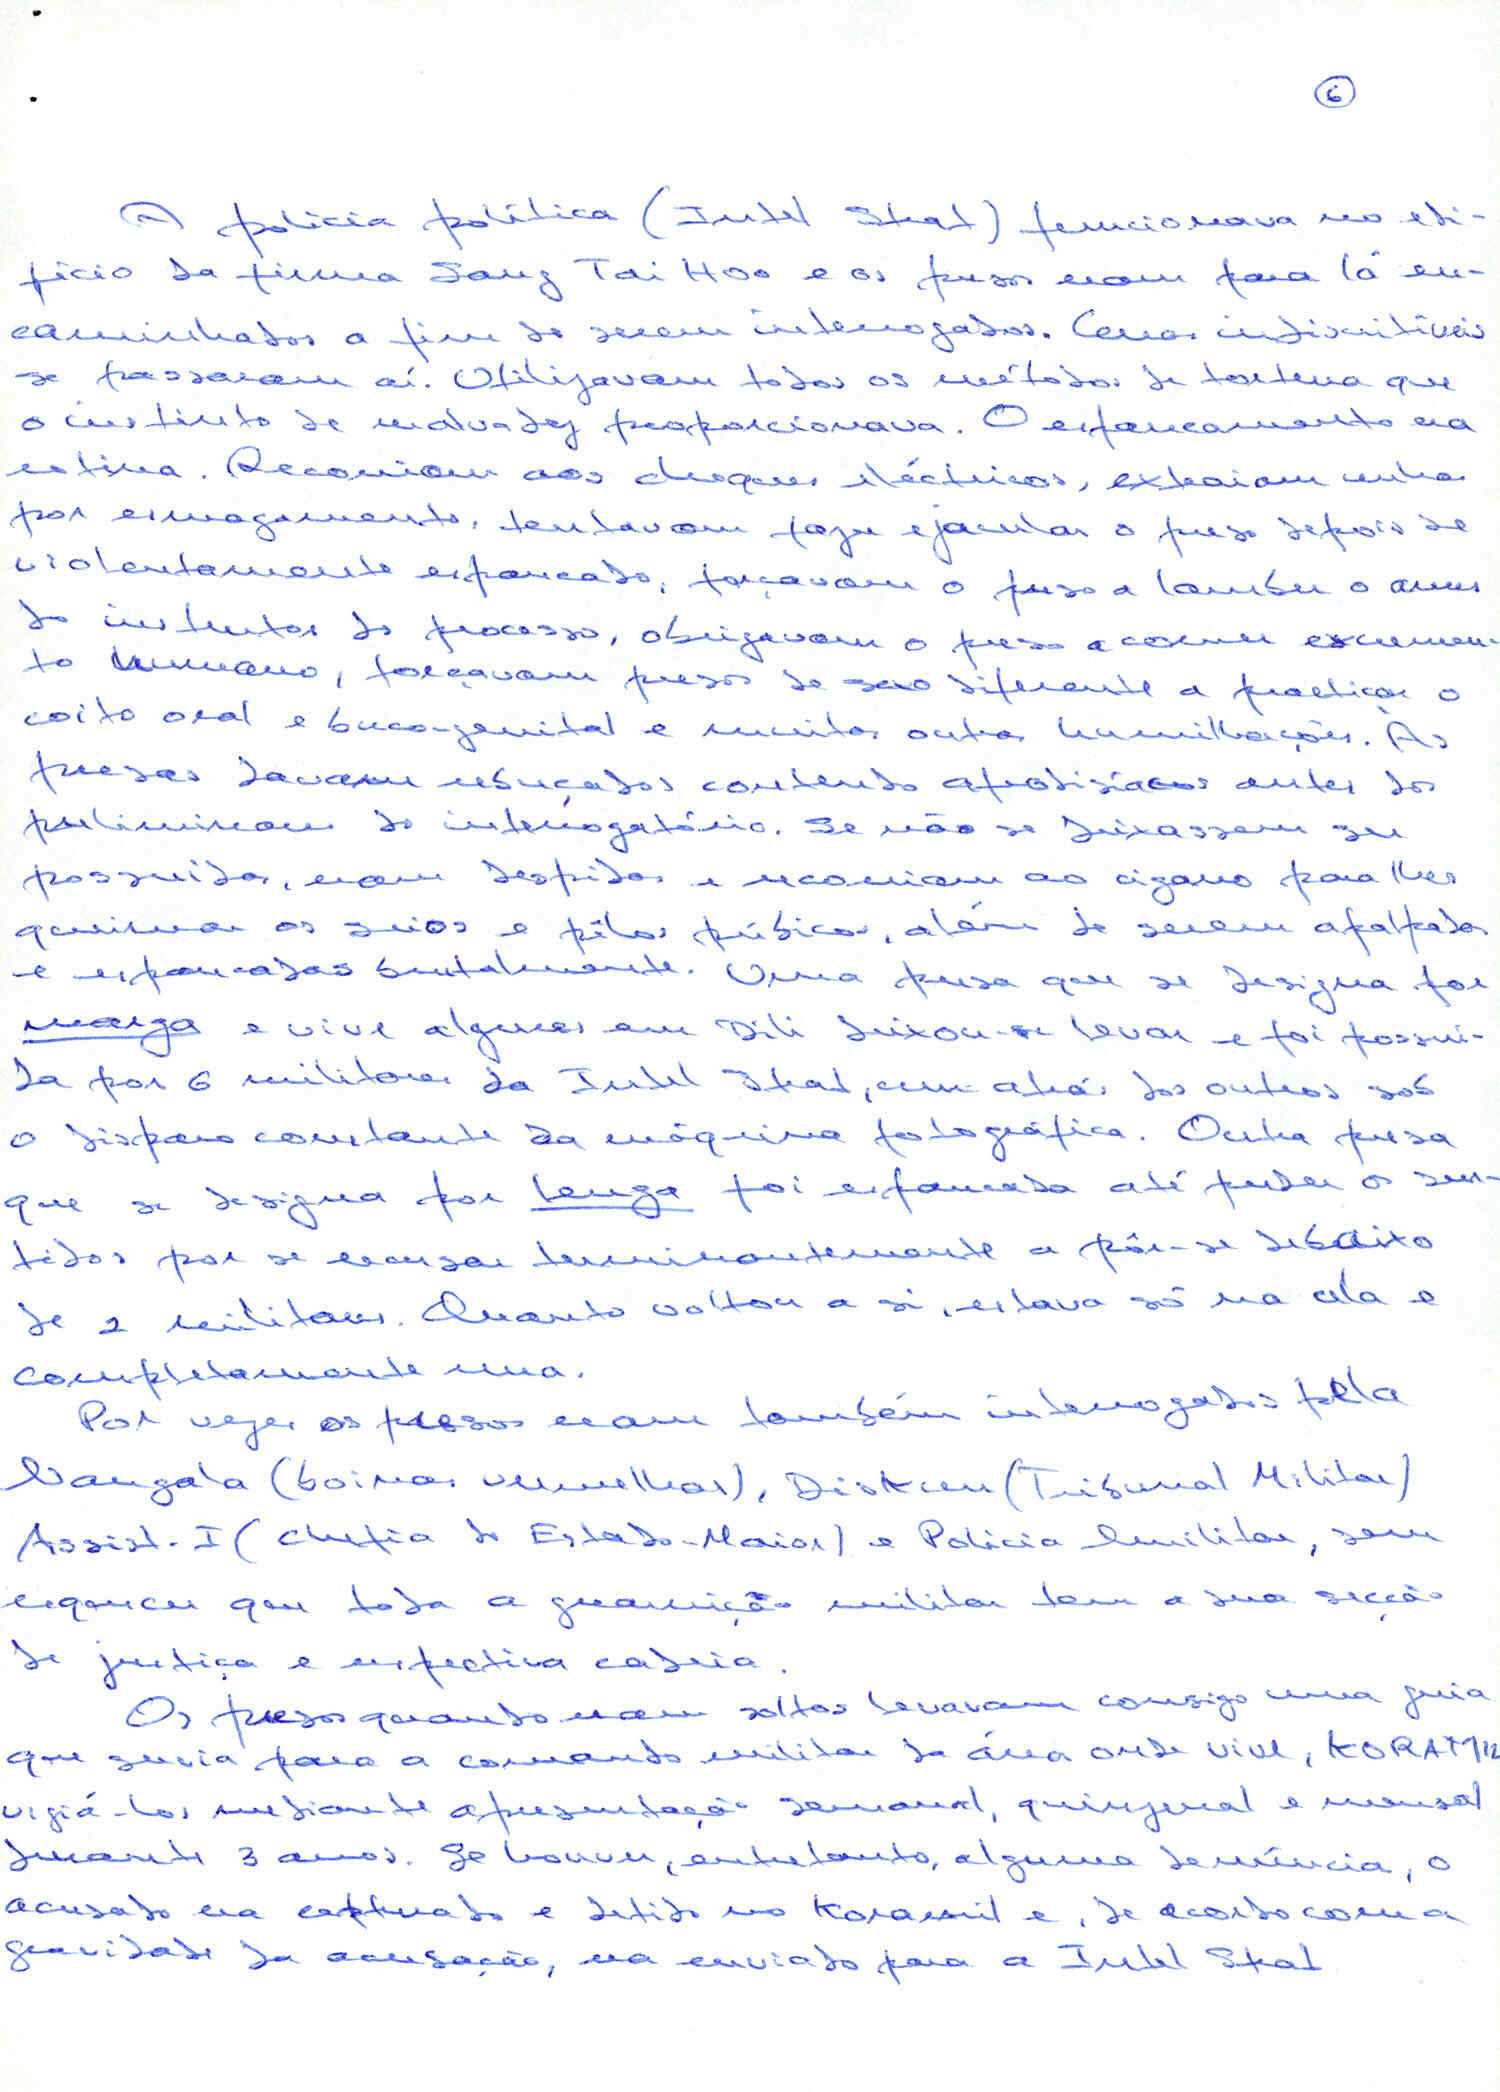 6
A policia política (Intel Skat) funcionava no edi-
fício da firma Sang Tai Hoo e os presos eram para lá en-
caminhados a fim de serem interrogados. Cenas indiscritíveis
se passaram aí. Utilizavam todos os métodos de tortura que
o instinto de malvadez proporcionava. O espancamento era
rotina. Recorriam aos choques eléctricos, extraiam unhas
por esmagamento, tentavam fazer ejacular o preso depois de
violentamente espancado, forçavam o preso a lamber o anus
do instrutor do processo, obrigavam o preso a comer excremen-
to humano, forçavam presos de sexo diferente a practicar o
coito oral e buco-genital e muitas outras humilhações. Às
presas davam rebuçados contendo afrodisíacos antes dos
preliminares do interrogatório. Se não se deixassem ser
possuidas, eram despidas e recorriam ao cigarro para lhes
queimar os seios e pêlos púbicos, além de serem apalpadas
e espancadas brutalmente. Uma presa que se designa por
marga e vive algures em Dili deixou-se levar e foi possui-
da por 6 militares da Intel Skat, um atrás dos outros sob
o disparo constante da máquina fotográfica. Outra presa
que se designa por lenga foi espancada até perder os sen-
tidos por se recusar terminantemente a pôr-se debaixo
de 2 militares. Quando voltou a si, estava só na cela e
completamente nua.
Por vezes os presos eram também interrogados pela
Nangala (boinas vermelhas), Diskum (Tribunal Militar)
Assist. I (chefia do Estado-Maior) e Policia Militar, sem
esquecer que toda a guarnição militar tem a sua secção
de justiça e respectiva cadeia.
Os presos quando eram soltos levavam consigo uma guia
que servia para o comando militar da área onde vive, KORAMIL
vigiá-los mediante apresentação semanal, quinzenal e mensal
durante 3 anos. Se houver, entretanto, alguma denúncia, o
acusado era capturado e detido no Koramil e, de acordo com a
gravidade da acusação, era enviado para a Intel Skat